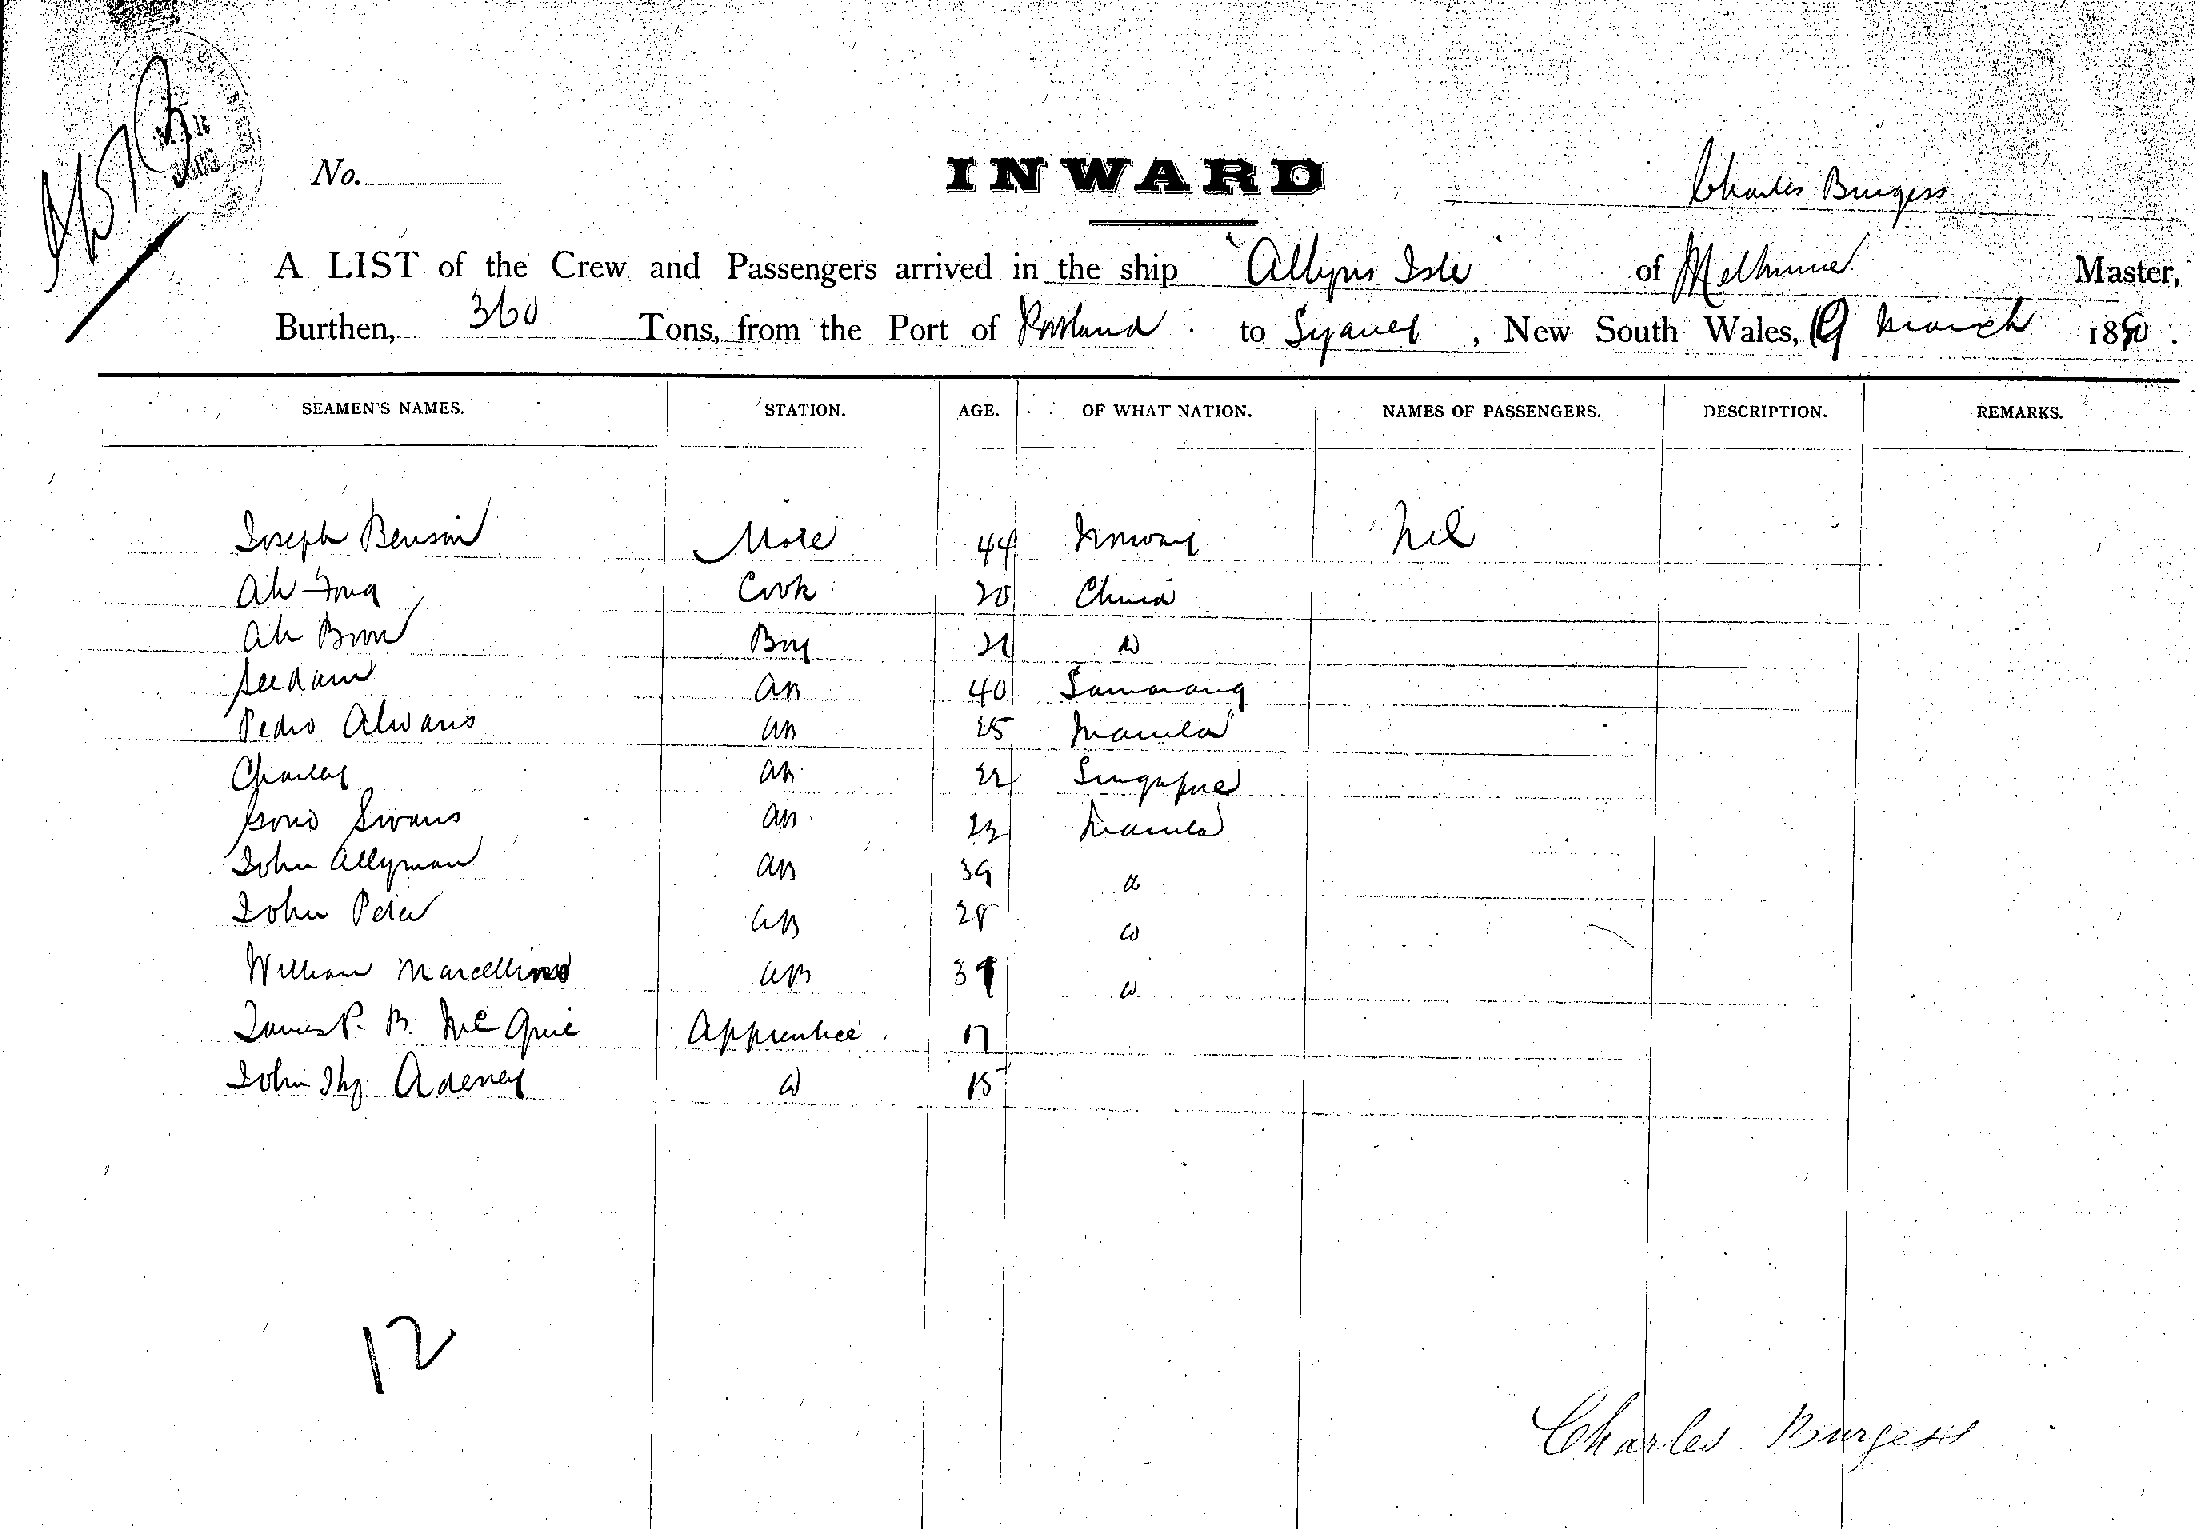 No.
INWARD
Charles Burgess
A LIST of the Crew and Passengers arrived in the ship "Allyns Isle" of Melbourne Master,
Burthen, 360 Tons, from the Port of Portland to Sydney, New South Wales, 19 March 1890.
SEAMEN'S NAMES. STATION. AGE. OF WHAT NATION. NAMES OF PASSENGERS. DESCRIPTION. REMARKS.
Joseph Benson Mate 44 Norway Nil
Ah Fong Cook 20 China
Ah Bow Boy 21 do
Seedam AB 40 Samarang
Pedro Alvaris AB 25 Manila
Charley AB 22 Singapore
Swans AB 23 Manila
John Allyman AB 39 do
John Peter AB 28 do
William Marcellino AB 39 do
James P. B. McQuie Apprentice 17
John Adeney do 15
12
Charles Burgess